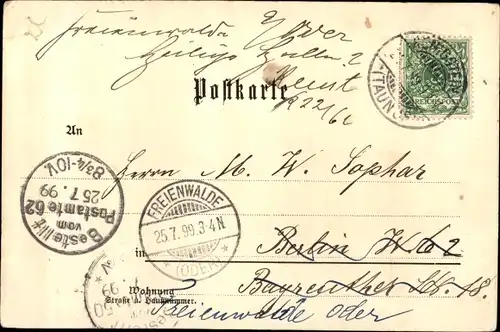 Freienwalde a/Oder
Heilige
Postkarte
REICHSPOST
An
Herrn M. W. Sophar
Bestellt
vom
Postamte 62
25.7.99
8¾-10V.
FREIENWALDE
25.7.99.3-4N
(ODER)
in Berlin W 62
Wohnung
Straße u. Hausnummer.
Bayreuther Str. 18.
Freienwalde Oder